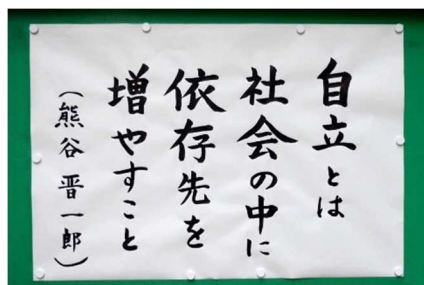 自立とは
社会の中に
依存先を
増やすこと
（熊谷晋一郎）